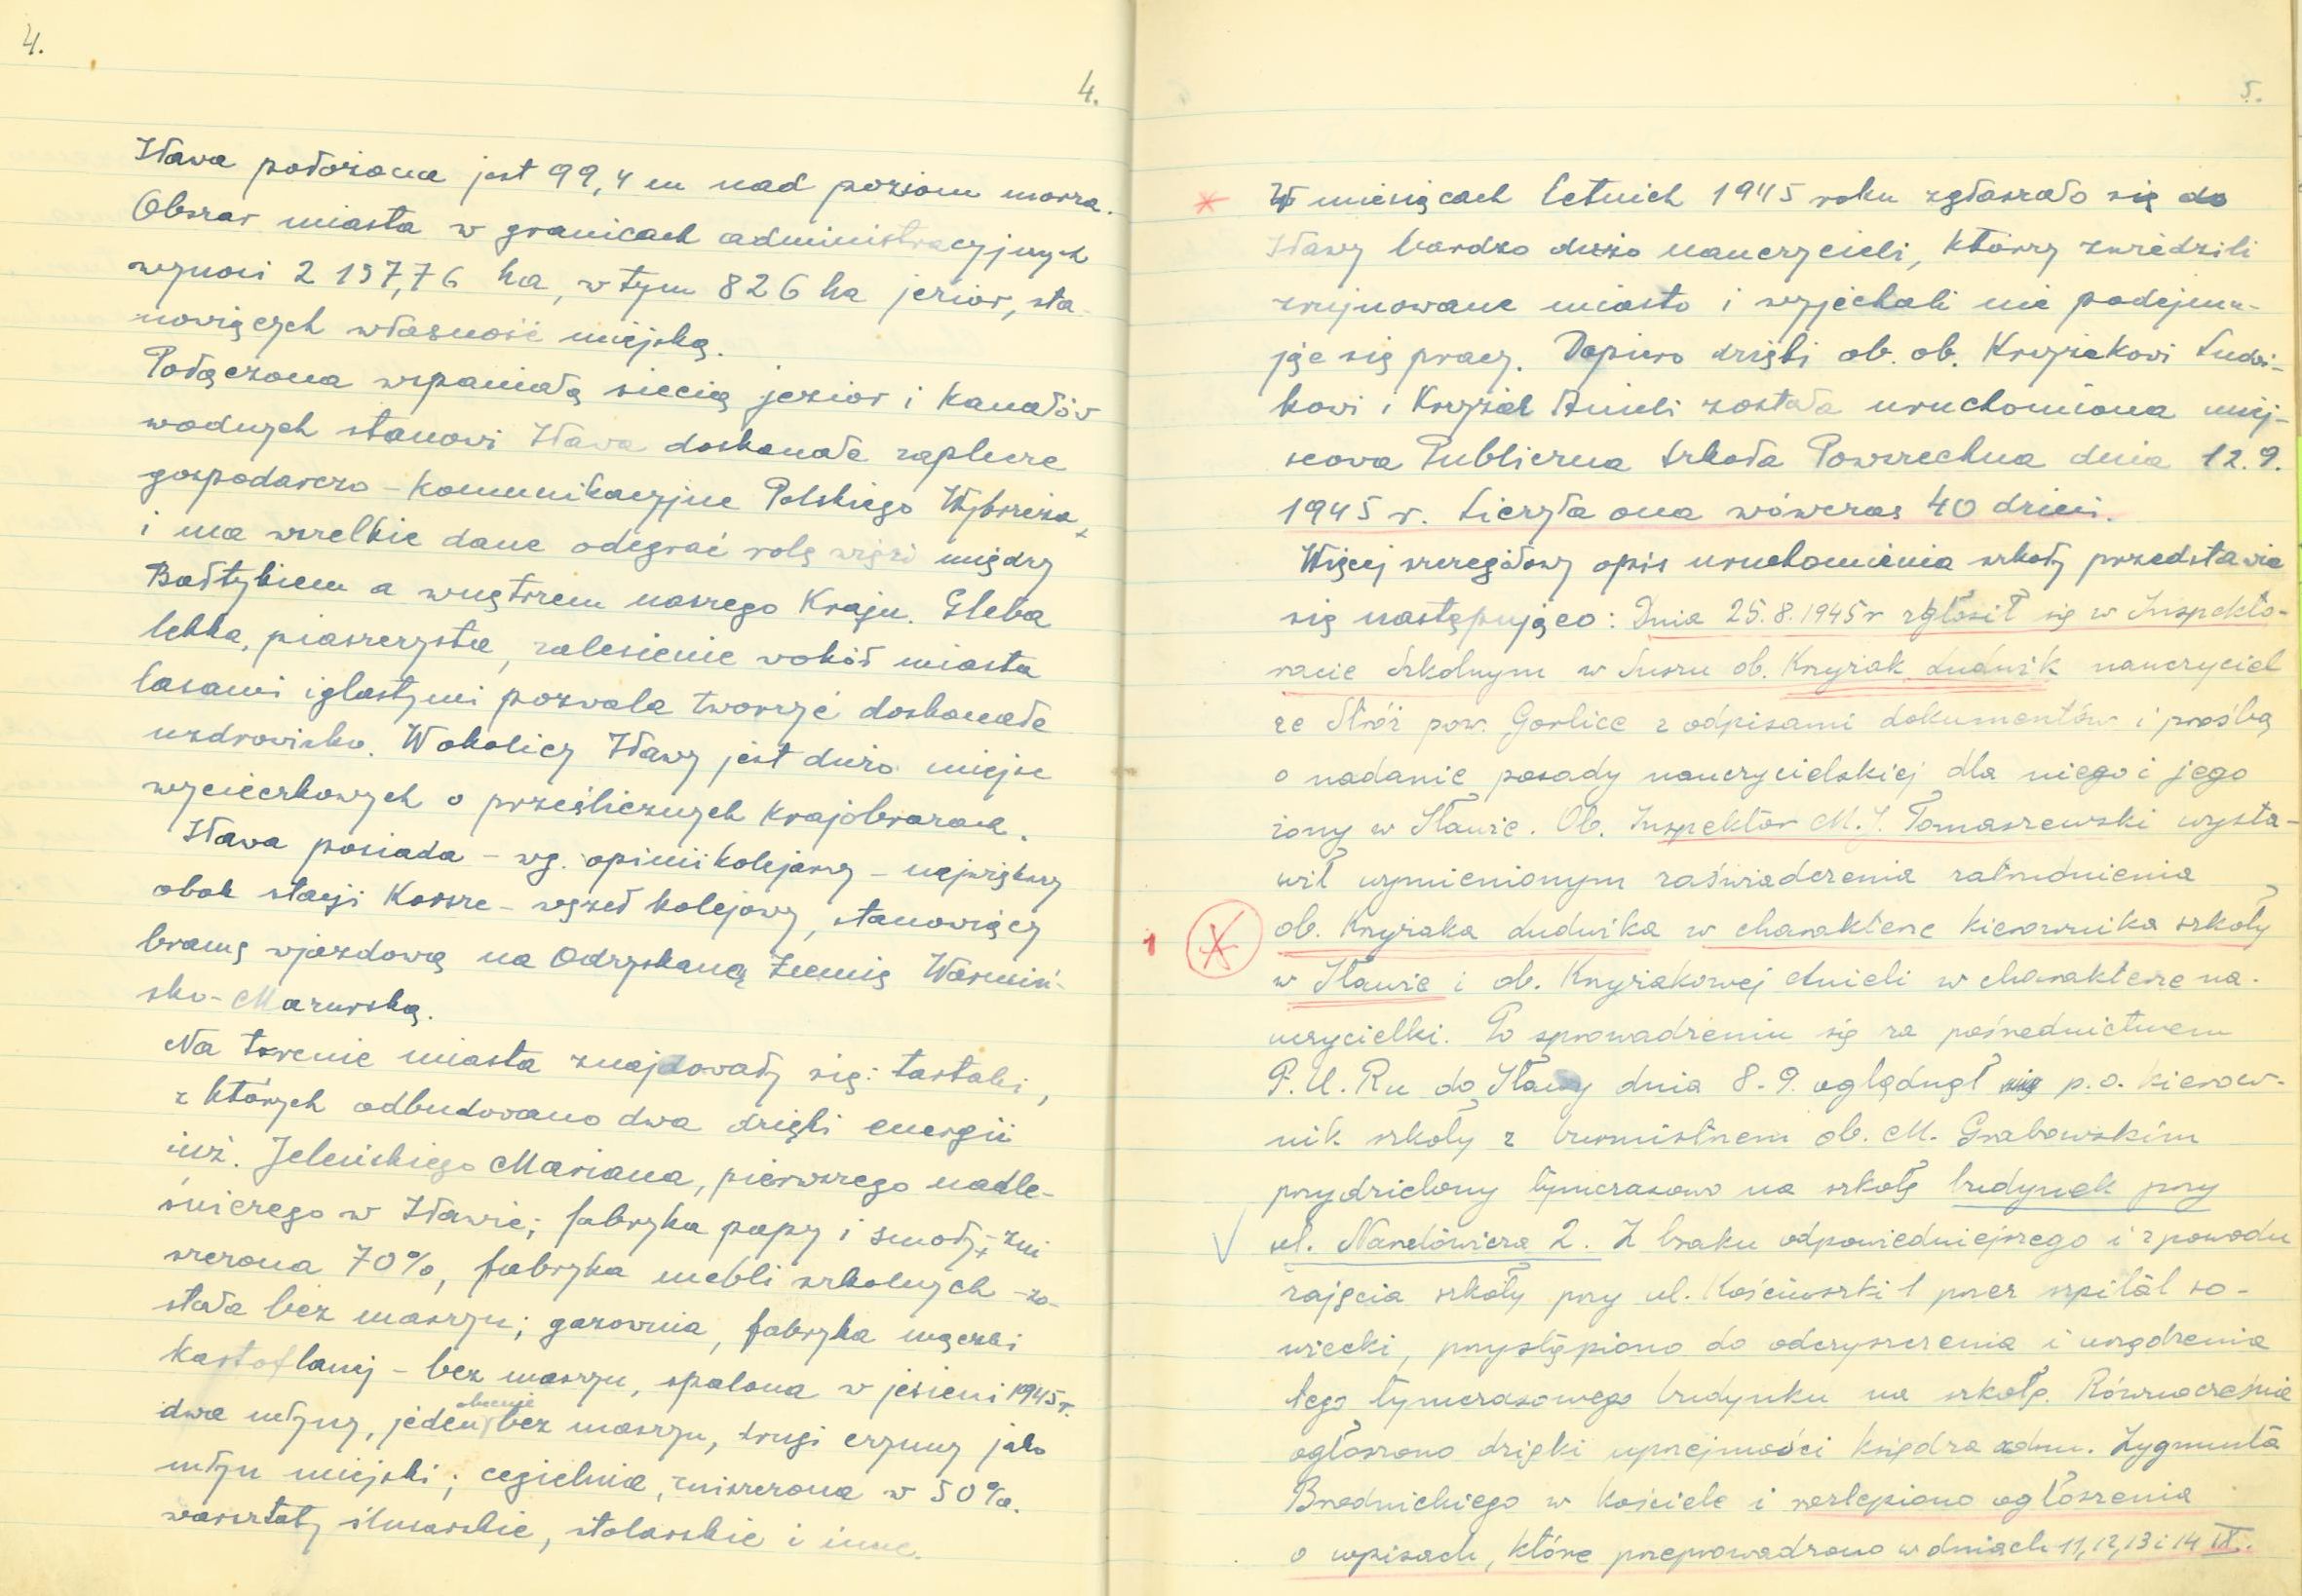 4.
4.
Iława położona jest 99,4 m nad poziom morza.
Obszar miasta w granicach administracyjnych
wynosi 2 157,76 ha, w tym 826 ha jezior, sta-
nowiących własność miejską.
Połączona wspaniałą siecią jezior i kanałów
wodnych stanowi Iława doskonałe zaplecze
gospodarczo - komunikacyjne Polskiego Wybrzeża,
i ma wszelkie dane odegrać rolę więzi między
Bałtykiem a wnętrzem naszego Kraju. Gleba
lekka, piaszczysta, zalesienie wokół miasta
lasami iglastymi pozwala tworzyć doskonałe
uzdrowisko. W okolicy Iławy jest dużo miejsc
wycieczkowych o prześlicznych krajobrazach.
Iława posiada - wg. opinii kolejarzy - największy
obok stacji Korsze - węzeł kolejowy, stanowiący
bramę wjazdową na Odzyskaną Ziemię Warmiń-
sko-Mazurską.
Na terenie miasta znajdowały się: tartaki,
z których odbudowano dwa dzięki energii
inż. Jeleńskiego Mariana, pierwszego nadle-
śniczego w Iławie; fabryka papy i smoły, - zni
szczona 70%, fabryka mebli szkolnych - zo-
stała bez maszyn; gazownia, fabryka mączki
kartoflanej - bez maszyn, spalona w jesieni 1945 r.
dwa młyny, jeden obecnie bez maszyn, drugi czynny jako
młyn miejski; cegielnia, zniszczona w 50%.
warsztaty ślusarskie, stolarskie i inne.
5.
* W miesiącach letnich 1945 roku zgłaszało się do
Iławy bardzo dużo nauczycieli, którzy zwiedzili
zrujnowane miasto i wyjechali nie podejmu-
jąc się pracy. Dopiero dzięki ob. ob. Knyziakowi Ludwi-
kowi i Knyziak Anieli została uruchomiona miej-
scowa Publiczna Szkoła Powszechna dnia 12.9.
1945 r. Liczyła ona wówczas 40 dzieci.
Więcej szczegółowy opis uruchomienia szkoły przedstawia
się następująco: Dnia 25.8.1945 r zgłosił się w Inspekto-
racie Szkolnym w Suszu ob. Knyziak Ludwik nauczyciel
ze Stróż pow. Gorlice z odpisami dokumentów i prośbą
o nadanie posady nauczycielskiej dla niego i jego
żony w Iławie. Ob. Inspektor M. J. Tomaszewski wysta-
wił wymienionym zaświadczenia zatrudnienia
1 * ob. Knyziaka Ludwika w charakterze kierownika szkoły
w Iławie i ob. Knyziakowej Anieli w charakterze na-
uczycielki. Po sprowadzeniu się za pośrednictwem
P.U.Ru do Iławy dnia 8.9. oglądnął p.o. kierow-
nik szkoły z burmistrzem ob. M. Grabowskim
przydzielony tymczasowo na szkołę budynek przy
ul. Narutowicza 2. Z braku odpowiedniejszego i z powodu
zajęcia szkoły przy ul. Kościuszki 1 przez szpital so-
wiecki, przystąpiono do oczyszczenia i urządzenia
tego tymczasowego budynku na szkołę. Równocześnie
ogłoszono dzięki uprzejmości księdza adm. Zygmunta
Brednickiego w kościele i rozlepiono ogłoszenia
o wpisach, które przeprowadzono w dniach 11, 12, 13 i 14 IX.